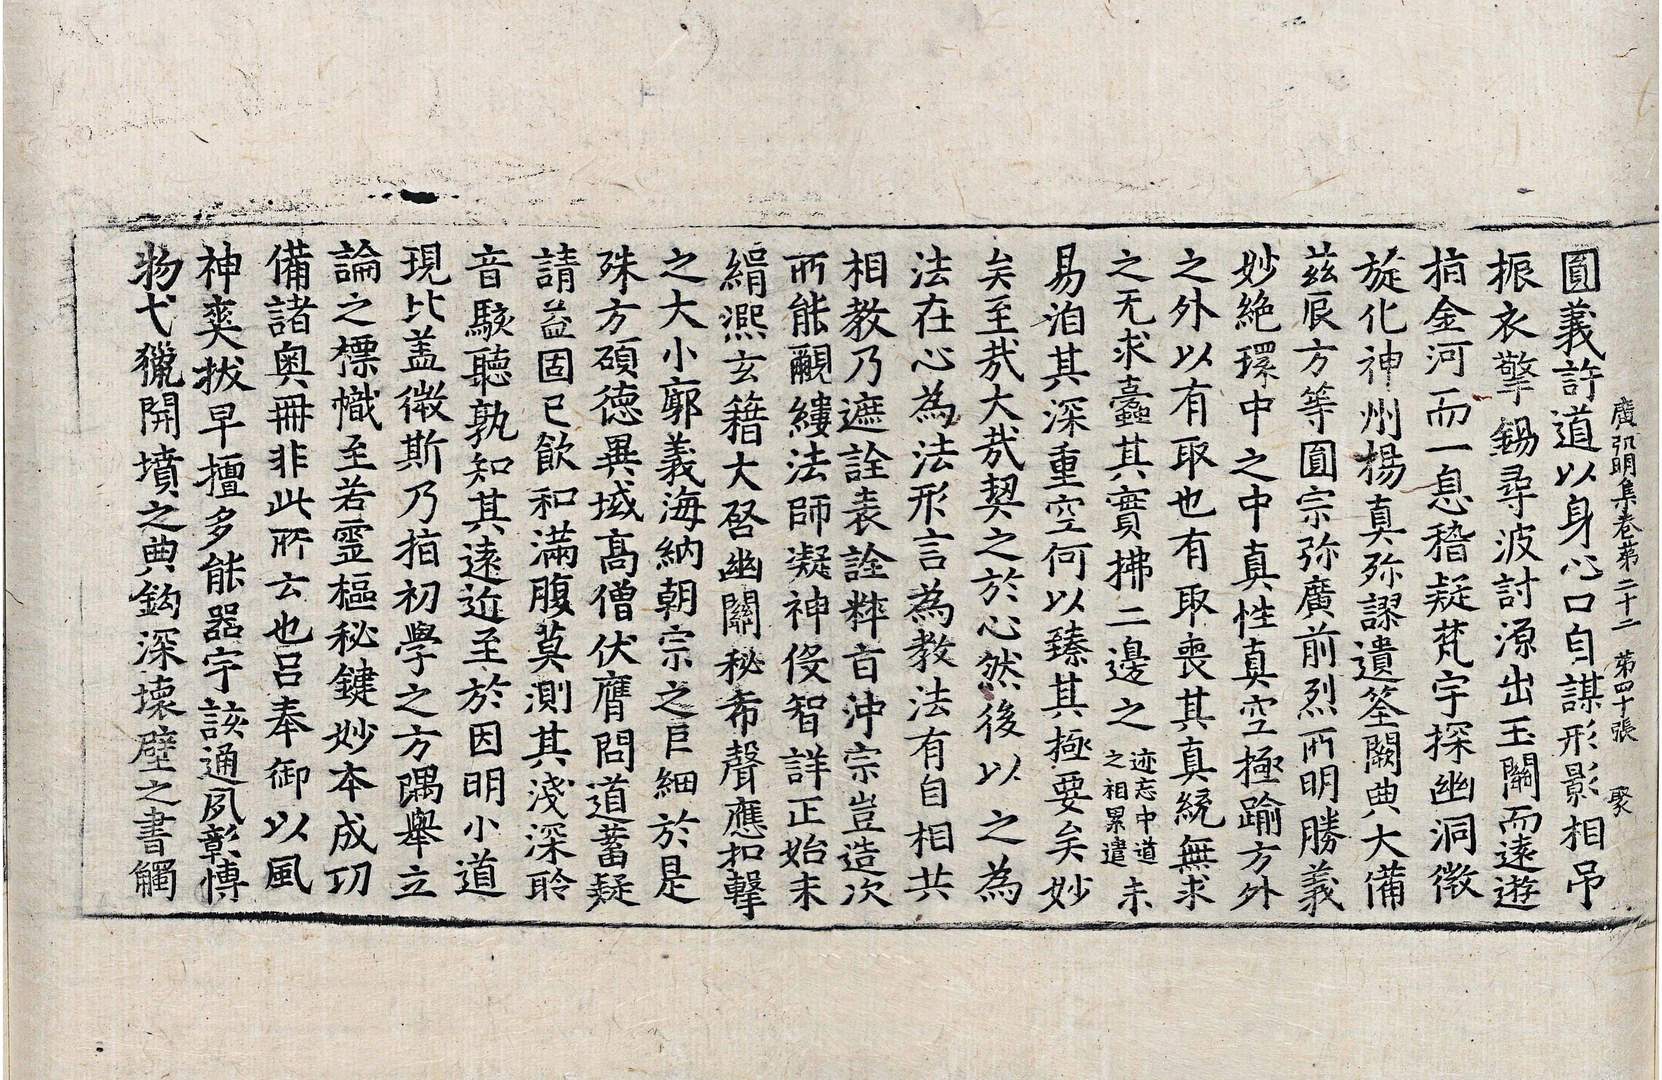 廣弘明集卷第二十二 第四十張 聚
圓義許道以身心口自謀形影相吊
振衣擎錫尋波討源出玉關而遠遊
指金河而一息稽疑梵宇探幽洞微
旋化神州楊真殄謬遺筌闕典大備
茲辰方等圓宗弥廣前烈所明勝義
妙絕環中之中真性真空極踰方外
之外以有取也有取喪其真統無求
之无求蠹其實拂二邊之迹忘中道之相累遣未
易洎其深重空何以臻其極要矣妙
矣至哉大哉契之於心然後以之為
法在心為法形言為教法有自相共
相教乃遮詮表詮粹旨沖宗豈造次
所能覼縷法師凝神役智詳正始末
緝熈玄籍大啓幽關秘希聲應扣擊
之大小廓義海納朝宗之巨細於是
殊方碩德異域高僧伏膺問道蓄疑
請益固已飲和滿腹莫測其淺深聆
音駭聽孰知其遠近至於因明小道
現比盖微斯乃指初學之方隅舉立
論之標幟至若靈樞秘鍵妙本成功
備諸奧冊非此所云也呂奉御以風
神爽拔早擅多能器宇該通夙彰博
物弋獵開墳之典鈎深壞壁之書觸